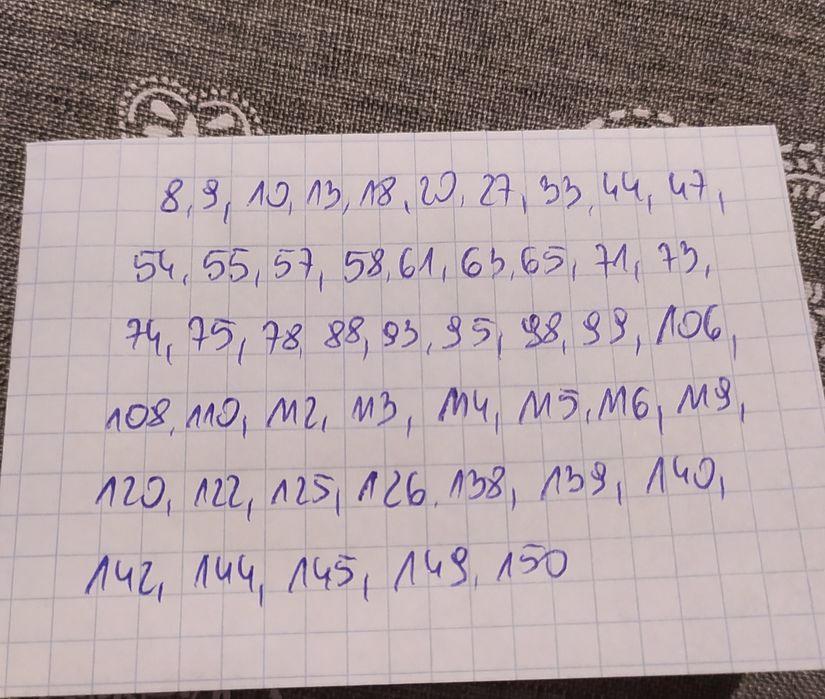 8, 9, 10, 13, 18, 20, 27, 33, 44, 47,
54, 55, 57, 58, 61, 63, 65, 71, 73,
74, 75, 78, 88, 93, 95, 98, 99, 106,
108, 110, 112, 113, 114, 115, 116, 119,
120, 122, 125, 126. 138, 139, 140,
142, 144, 145, 149, 150